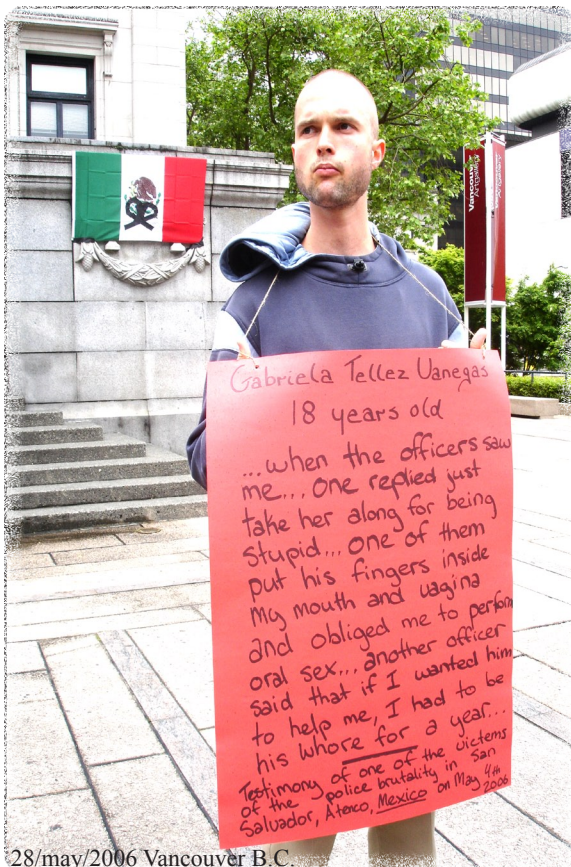 Vancouver
Artgallery
Gabriela Tellez Vanegas
18 years old
...when the officers saw
me... one replied just
take her along for being
stupid... one of them
put his fingers inside
my mouth and vagina
and obliged me to perform
oral sex... another officer
said that if I wanted him
to help me, I had to be
his whore for a year...
Testimony of one of the victems
of the police brutality in San
Salvador, Atenco, Mexico on May 4th
2006
28/may/2006 Vancouver B.C.